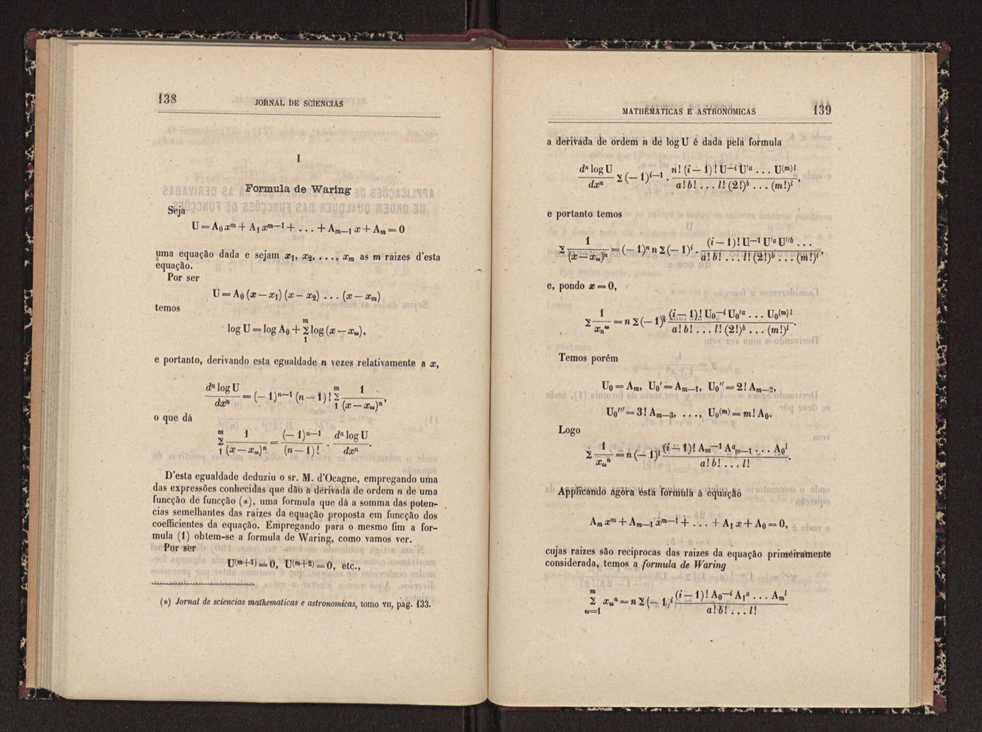 138
JORNAL DE SCIENCIAS
I
Formula de Waring
Seja
U = A₀ xᵐ + A₁ xᵐ⁻¹ + . . . + Aₘ₋₁ x + Aₘ = 0
uma equação dada e sejam x₁, x₂, . . ., xₘ as m raizes d'esta
equação.
Por ser
U = A₀ (x — x₁) (x — x₂) . . . (x — xₘ)
temos
log U = log A₀ + Σ₁ᵐ log (x — xᵤ),
e portanto, derivando esta egualdade n vezes relativamente a x,
dⁿ log U / dxⁿ = (— 1)ⁿ⁻¹ (n — 1)! Σ₁ᵐ 1 / (x — xᵤ)ⁿ,
o que dá
Σ₁ᵐ 1 / (x — xᵤ)ⁿ = (— 1)ⁿ⁻¹ / (n — 1)! · dⁿ log U / dxⁿ.
D'esta egualdade deduziu o sr. M. d'Ocagne, empregando uma
das expressões conhecidas que dão a derivada de ordem n de uma
funcção de funcção (*), uma formula que dá a somma das poten-
cias semelhantes das raizes da equação proposta em funcção dos
coefficientes da equação. Empregando para o mesmo fim a for-
mula (1) obtem-se a formula de Waring, como vamos ver.
Por ser
U⁽ᵐ⁺¹⁾ = 0, U⁽ᵐ⁺²⁾ = 0, etc.,
(*) Jornal de sciencias mathematicas e astronomicas, tomo VII, pag. 133.
MATHEMATICAS E ASTRONOMICAS
139
a derivada de ordem n de log U é dada pela formula
dⁿ log U / dxⁿ Σ (— 1)ⁱ⁻¹ · n! (i — 1)! U⁻ⁱ U′ᵃ . . . U⁽ᵐ⁾ˡ / a! b! . . . l! (2!)ᵇ . . . (m!)ˡ,
e portanto temos
Σ 1 / (x — xᵤ)ⁿ = (— 1)ⁿ n Σ (— 1)ⁱ · (i — 1)! U⁻ⁱ U′ᵃ U″ᵇ . . . / a! b! . . . l! (2!)ᵇ . . . (m!)ˡ,
e, pondo x = 0,
Σ 1 / xᵤⁿ = n Σ (— 1)ⁱ (i — 1)! U₀⁻ⁱ U₀′ᵃ . . . U₀⁽ᵐ⁾ˡ / a! b! . . . l! (2!)ᵇ . . . (m!)ˡ.
Temos porém
U₀ = Aₘ, U₀′ = Aₘ₋₁, U₀″ = 2! Aₘ₋₂,
U₀‴ = 3! Aₘ₋₃, . . ., U₀⁽ᵐ⁾ = m! A₀.
Logo
Σ 1 / xᵤⁿ = n (— 1)ⁱ (i — 1)! Aₘ⁻ⁱ Aᵃₘ₋₁ . . . A₀ˡ / a! b! . . . l!.
Applicando agora esta formula á equação
Aₘ xᵐ + Aₘ₋₁ xᵐ⁻¹ + . . . + A₁ x + A₀ = 0,
cujas raizes são reciprocas das raizes da equação primeiramente
considerada, temos a formula de Waring
Σᵤ₌₁ᵐ xᵤⁿ = n Σ (— 1)ⁱ (i — 1)! A₀⁻ⁱ A₁ᵃ . . . Aₘˡ / a! b! . . . l!